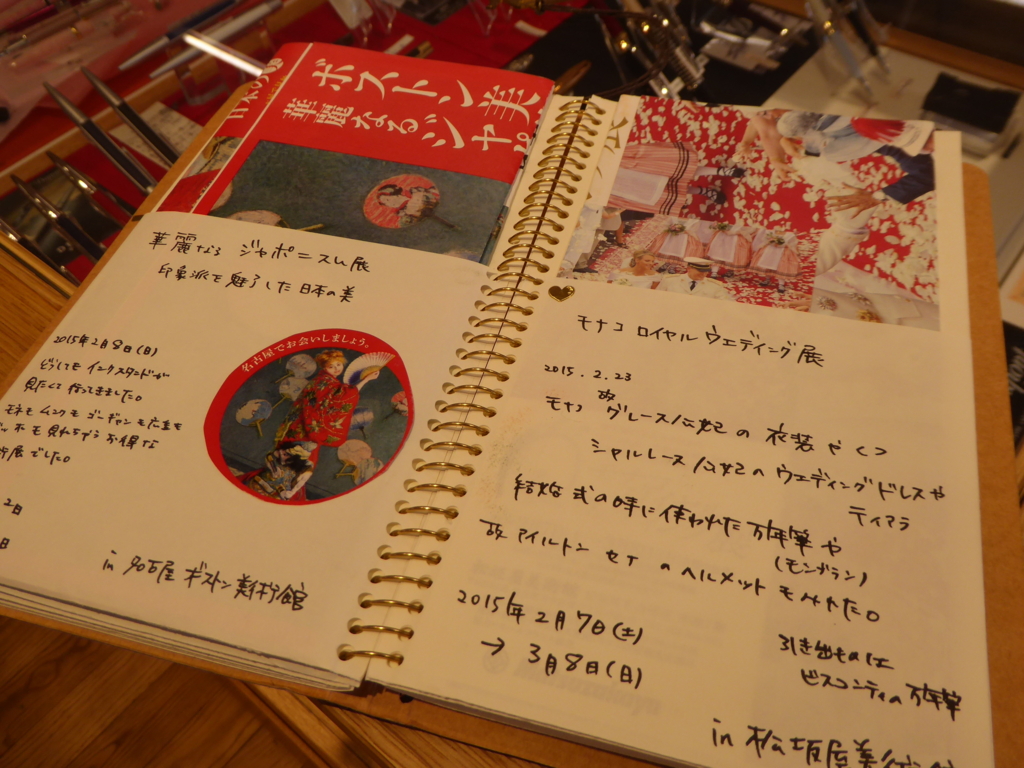 ボストン美
華麗なるジャポ
華麗なる ジャポニスム展
印象派を魅了した日本の美
名古屋でお会いしましょう。
2015年2月8日(日)
どうしても インクスタンドが
見たくて 行ってきました。
モネも ムンクも ゴーギャンも 広重も
ホも 見れちゃう お得な
展でした。
2日
日
in 名古屋 ボストン美術館
モナコ ロイヤル ウエディング展
2015.2.23
モナコ 故 グレース公妃の 衣装や くつ
シャルレーヌ公妃の ウエディングドレスや
ティアラ
結婚式の時に使われた万年筆や
(モンブラン)
故 アイルトン セナ のヘルメットもみれた。
2015年2月7日(土)
→ 3月8日(日)
引き出ものは
ビスコンティの万年筆
in 松坂屋美術館